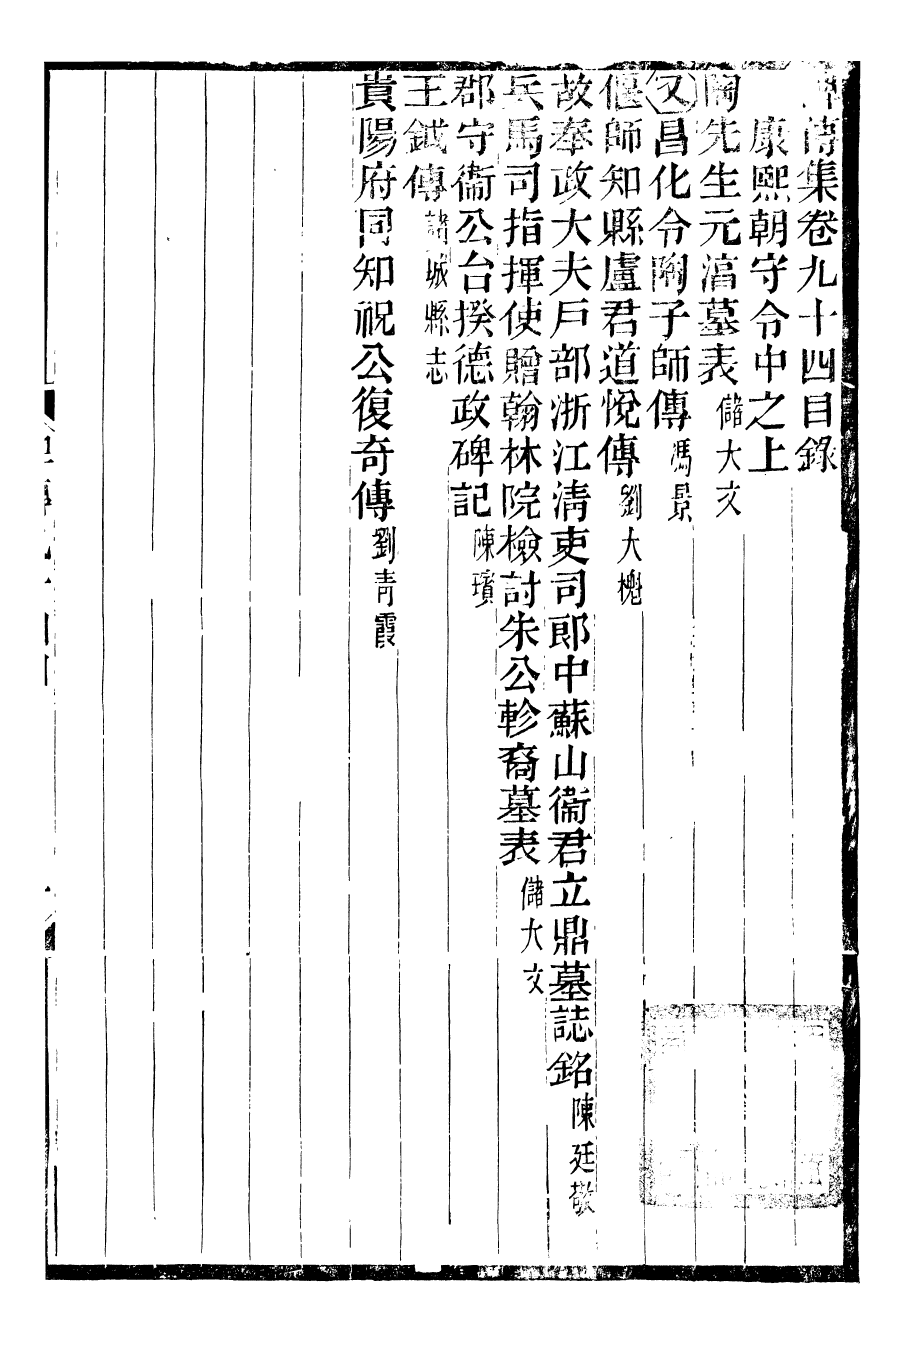 碑傳集卷九十四目錄
康熙朝守令中之上
陶先生元淳墓表 儲大文
又昌化令陶子師傳 馮景
偃師知縣盧君道悅傳 劉大櫆
故奉政大夫戶部浙江淸吏司郎中蘇山衞君立鼎墓誌銘 陳廷敬
兵馬司指揮使贈翰林院檢討朱公軫裔墓表 儲大文
郡守衞公台揆德政碑記 陳璸
王鉞傳 諸城縣志
貴陽府同知祝公復奇傳 劉青霞